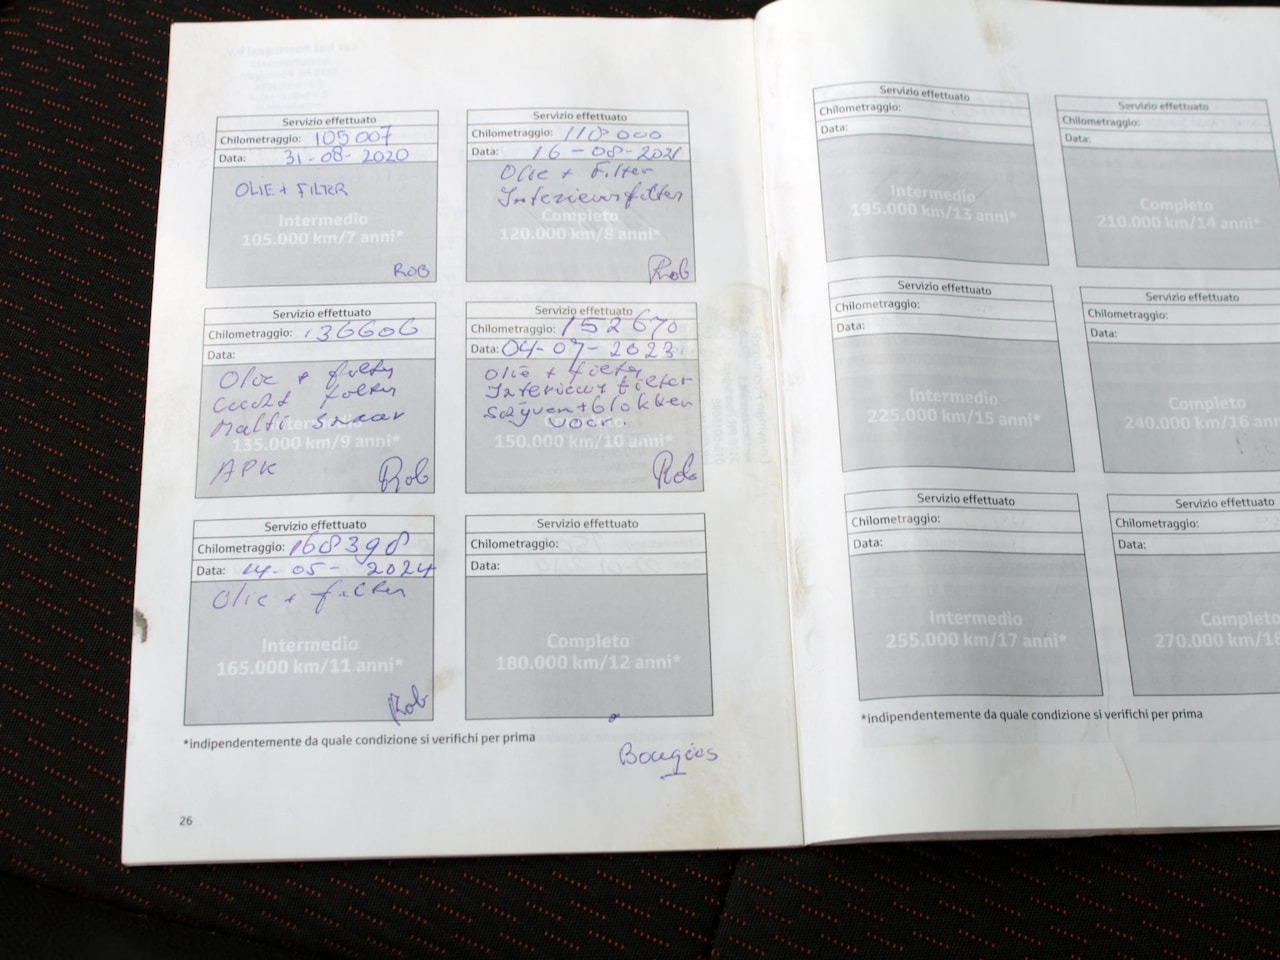 Servizio effettuato
Chilometraggio: 105 007
Data: 31-08-2020
OLIE + FILTER
Intermedio
105.000 km/7 anni*
ROB
Servizio effettuato
Chilometraggio: 118 000
Data: 16-08-2021
Olie + Filter
Interieurfilter
Completo
120.000 km/8 anni*
Rob
Servizio effettuato
Chilometraggio: 136606
Data:
Olie + filter
filter
Multi Snaar
135.000 km/9 anni*
APK
Rob
Servizio effettuato
Chilometraggio: 152670
Data: 04-07-2023
Olie + filter
Interieur filter
Schyven + blokken
voor.
150.000 km/10 anni*
Rob
Servizio effettuato
Chilometraggio: 168398
Data: 14-05-2024
Olie + filter
Intermedio
165.000 km/11 anni*
Rob
Servizio effettuato
Chilometraggio:
Data:
Completo
180.000 km/12 anni*
*indipendentemente da quale condizione si verifichi per prima
Bougies
26
Servizio effettuato
Chilometraggio:
Data:
Intermedio
195.000 km/13 anni*
Servizio effettuato
Chilometraggio:
Data:
Completo
210.000 km/14 anni*
Servizio effettuato
Chilometraggio:
Data:
Intermedio
225.000 km/15 anni*
Servizio effettuato
Chilometraggio:
Data:
Completo
240.000 km/16 an
Servizio effettuato
Chilometraggio:
Data:
Intermedio
255.000 km/17 anni*
Servizio effettuato
Chilometraggio:
Data:
Completo
270.000 km/1
*indipendentemente da quale condizione si verifichi per prima